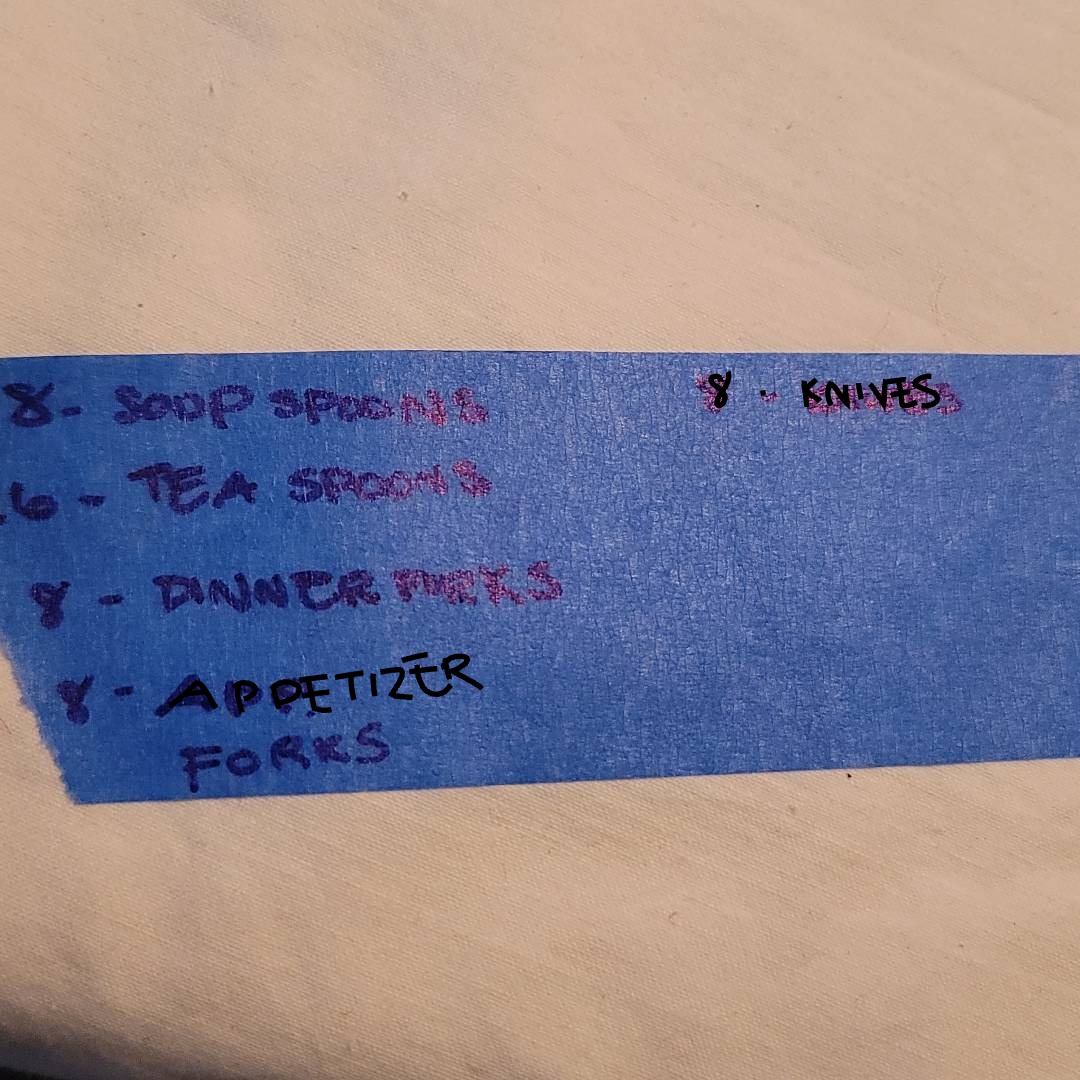 8- SOUP SPOONS
16 - TEA SPOONS
8 - DINNER FORKS
8 - APPETIZER
FORKS
8 - KNIVES